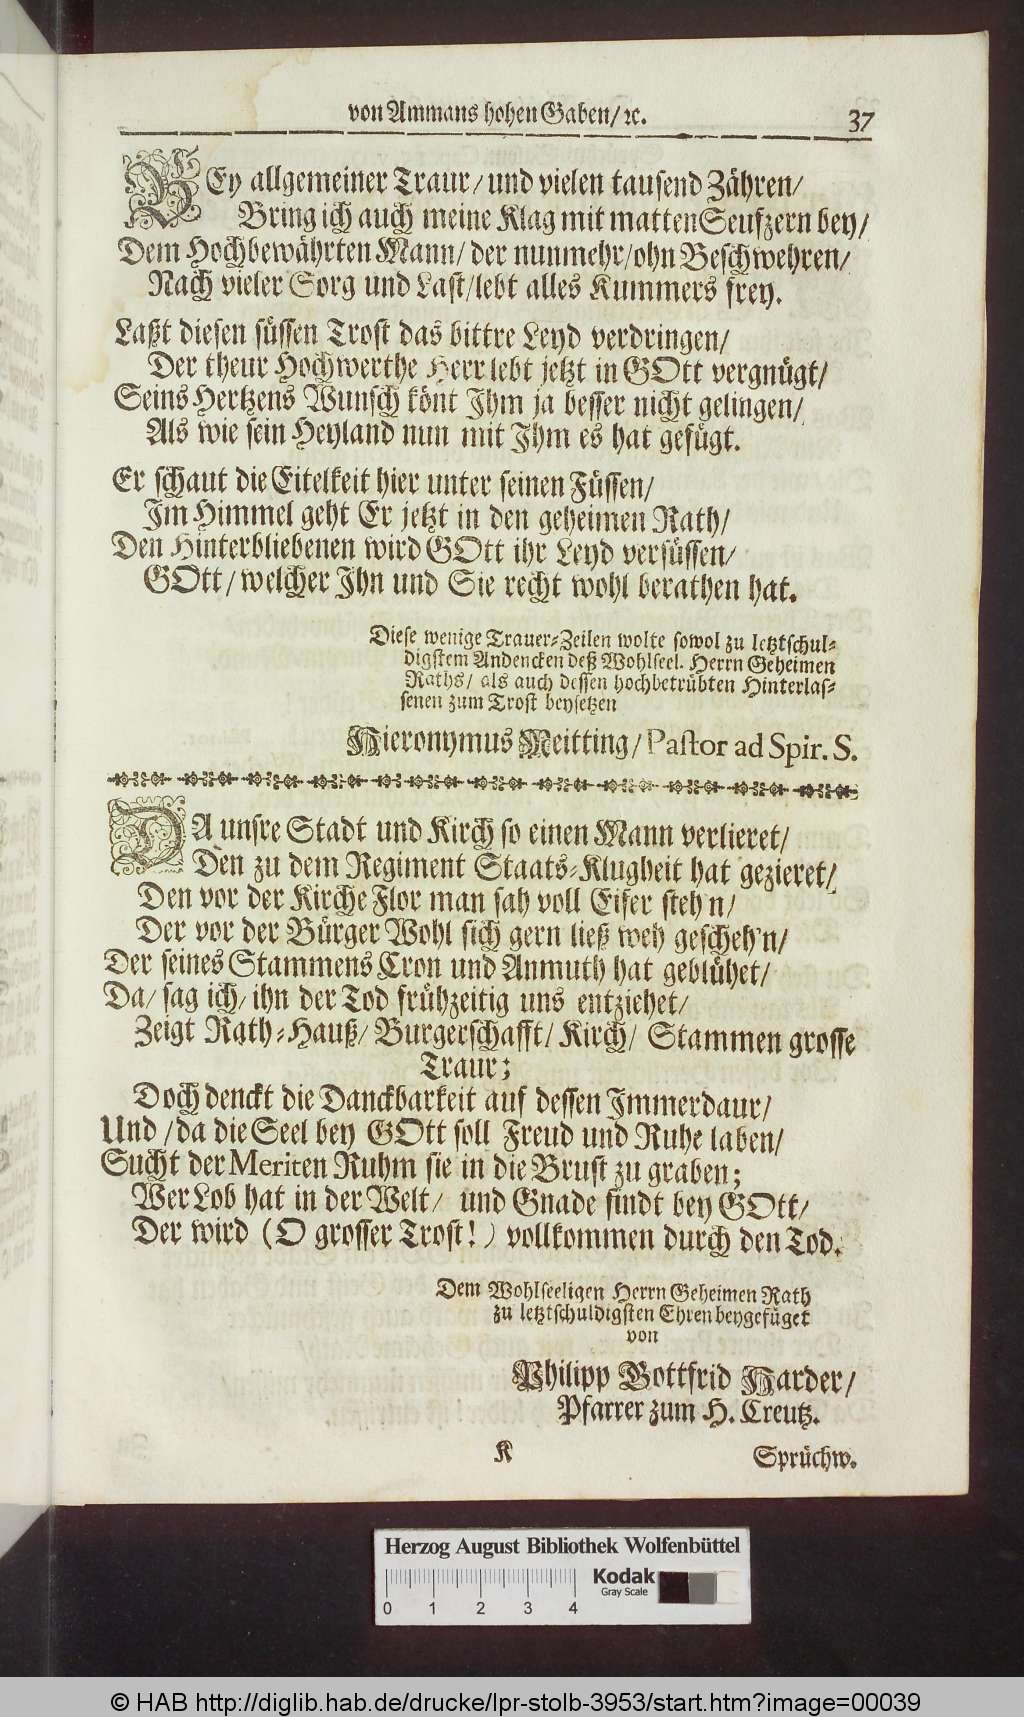 von Ammans hohen Gaben/ ꝛc.
37
BEy allgemeiner Traur/ und vielen tausend Zähren/
Bring ich auch meine Klag mit matten Seufzern bey/
Dem Hochbewährten Mann/ der nunmehr/ ohn Beschwehren/
Nach vieler Sorg und Last/ lebt alles Kummers frey.
Laßt diesen süssen Trost das bittre Leyd verdringen/
Der theur Hochwerthe Herr lebt jetzt in GOtt vergnügt/
Seins Hertzens Wunsch könt Ihm ja besser nicht gelingen/
Als wie sein Heyland nun mit Ihm es hat gefügt.
Er schaut die Eitelkeit hier unter seinen Füssen/
Im Himmel geht Er jetzt in den geheimen Rath/
Den Hinterbliebenen wird GOtt ihr Leyd versüssen/
GOtt/ welcher Ihn und Sie recht wohl berathen hat.
Diese wenige Trauer-Zeilen wolte sowol zu letztschul-
digstem Andencken deß Wohlseel. Herrn Geheimen
Raths/ als auch dessen hochbetrübten Hinterlas-
senen zum Trost beysetzen
Hieronymus Meitting/ Pastor ad Spir. S.
DA unsre Stadt und Kirch so einen Mann verlieret/
Den zu dem Regiment Staats-Klugheit hat gezieret/
Den vor der Kirche Flor man sah voll Eifer steh'n/
Der vor der Bürger Wohl sich gern ließ weh gescheh'n/
Der seines Stammens Cron und Anmuth hat geblühet/
Da/ sag ich/ ihn der Tod frühzeitig uns entziehet/
Zeigt Rath-Hauß/ Burgerschafft/ Kirch/ Stammen grosse
Traur;
Doch denckt die Danckbarkeit auf dessen Immerdaur/
Und/ da die Seel bey GOtt soll Freud und Ruhe laben/
Sucht der Meriten Ruhm sie in die Brust zu graben;
Wer Lob hat in der Welt/ und Gnade findt bey GOtt/
Der wird (O grosser Trost!) vollkommen durch den Tod.
Dem Wohlseeligen Herrn Geheimen Rath
zu letztschuldigsten Ehren beygefüget
von
Philipp Gottfrid Harder/
Pfarrer zum H. Creutz.
K
Sprüchw.
Herzog August Bibliothek Wolfenbüttel
Kodak
Gray Scale
0 1 2 3 4
© HAB http://diglib.hab.de/drucke/lpr-stolb-3953/start.htm?image=00039